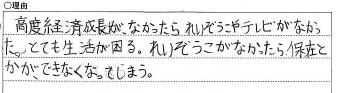 ○理由
高度経済成長が、なかったられいぞうこやテレビがなかっ
た。とても生活が困る。れいぞうこがなかったら保在と
かが、できなくなってしまう。